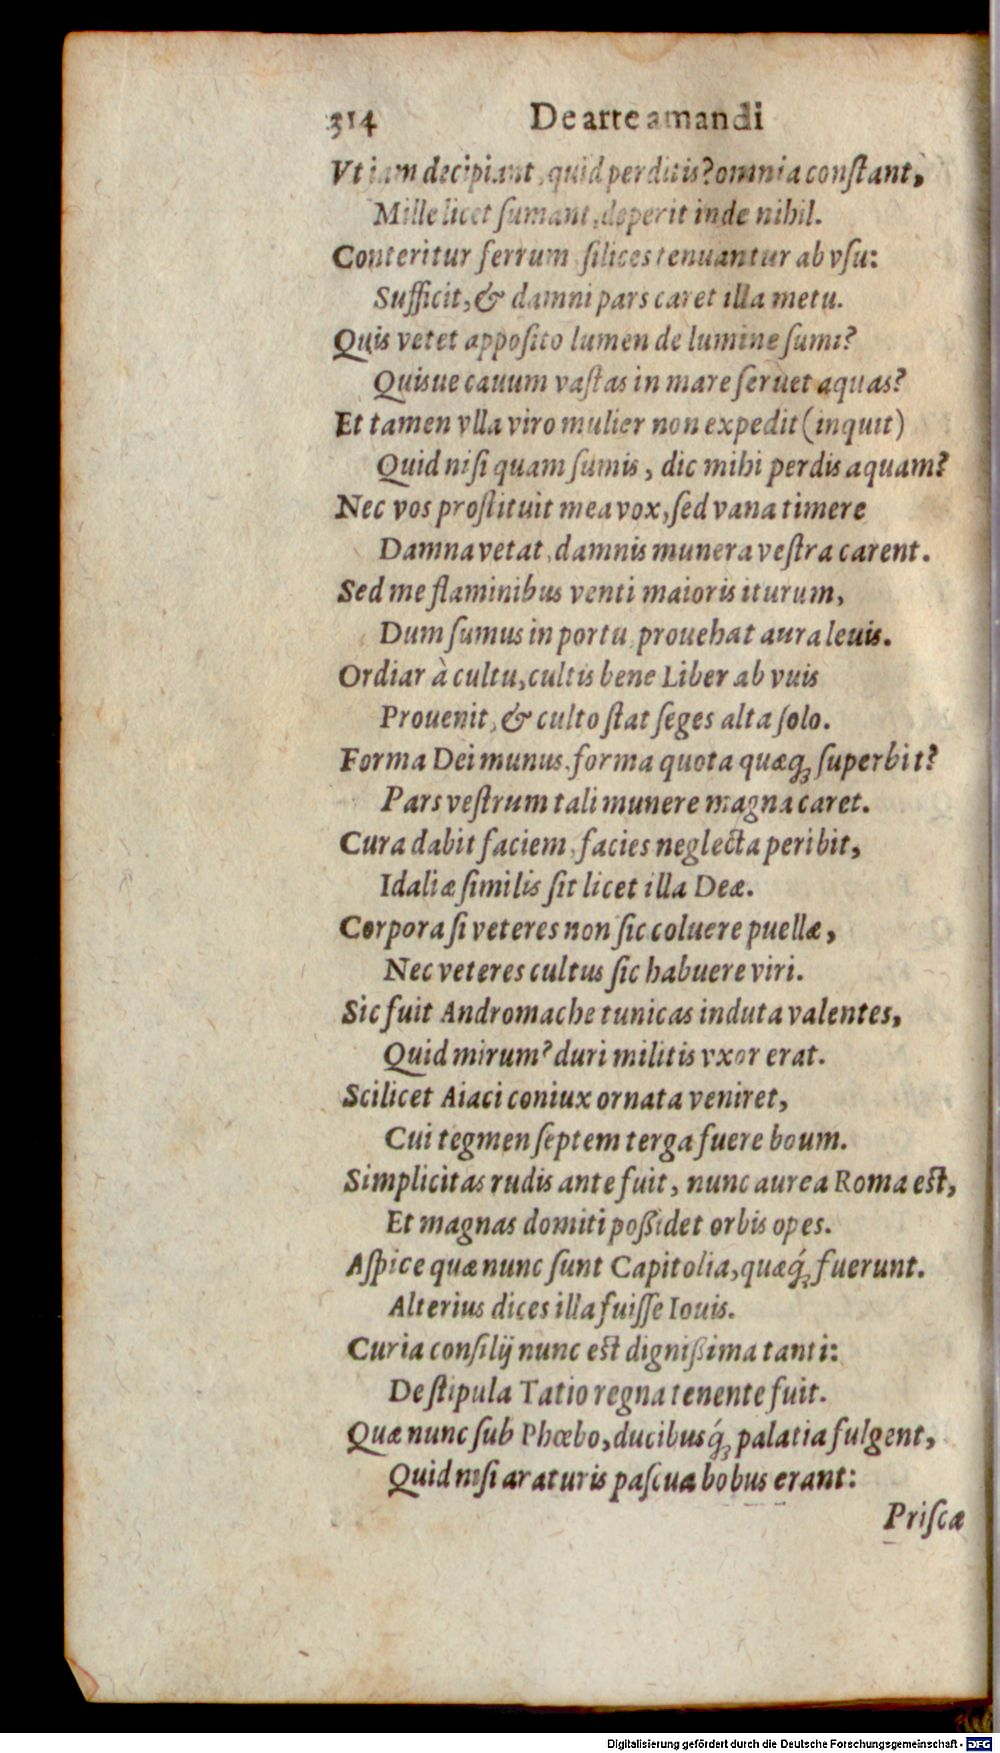 314 De arte amandi
Vt iam decipiant, quid perditis? omnia conſtant,
Mille licet ſumant, deperit inde nihil.
Conteritur ferrum ſilices tenuantur ab vſu:
Sufficit, & damni pars caret illa metu.
Quis vetet appoſito lumen de lumine ſumi?
Quisue cauum vaſtas in mare ſeruet aquas?
Et tamen vlla viro mulier non expedit (inquit)
Quid niſi quam ſumis, dic mihi perdis aquam?
Nec vos proſtituit mea vox, ſed vana timere
Damna vetat, damnis munera veſtra carent.
Sed me flaminibus venti maioris iturum,
Dum ſumus in portu prouehat aura leuis.
Ordiar à cultu, cultis bene Liber ab vuis
Prouenit, & culto ſtat ſeges alta ſolo.
Forma Dei munus, forma quota quæq; ſuperbit?
Pars veſtrum tali munere magna caret.
Cura dabit faciem, facies neglecta peribit,
Idaliæ ſimilis ſit licet illa Deæ.
Corpora ſi veteres non ſic coluere puellæ,
Nec veteres cultus ſic habuere viri.
Sic fuit Andromache tunicas induta valentes,
Quid mirum? duri militis vxor erat.
Scilicet Aiaci coniux ornata veniret,
Cui tegmen ſeptem terga fuere boum.
Simplicitas rudis ante fuit, nunc aurea Roma est,
Et magnas domiti poßidet orbis opes.
Aſpice quæ nunc ſunt Capitolia, quæq́; fuerunt.
Alterius dices illa fuiſſe Iouis.
Curia conſilij nunc est dignißima tanti:
De ſtipula Tatio regna tenente fuit.
Quæ nunc ſub Phœbo, ducibusq́; palatia fulgent,
Quid niſi araturis paſcua bobus erant:
Priſcæ
Digitalisierung gefördert durch die Deutsche Forschungsgemeinschaft - DFG